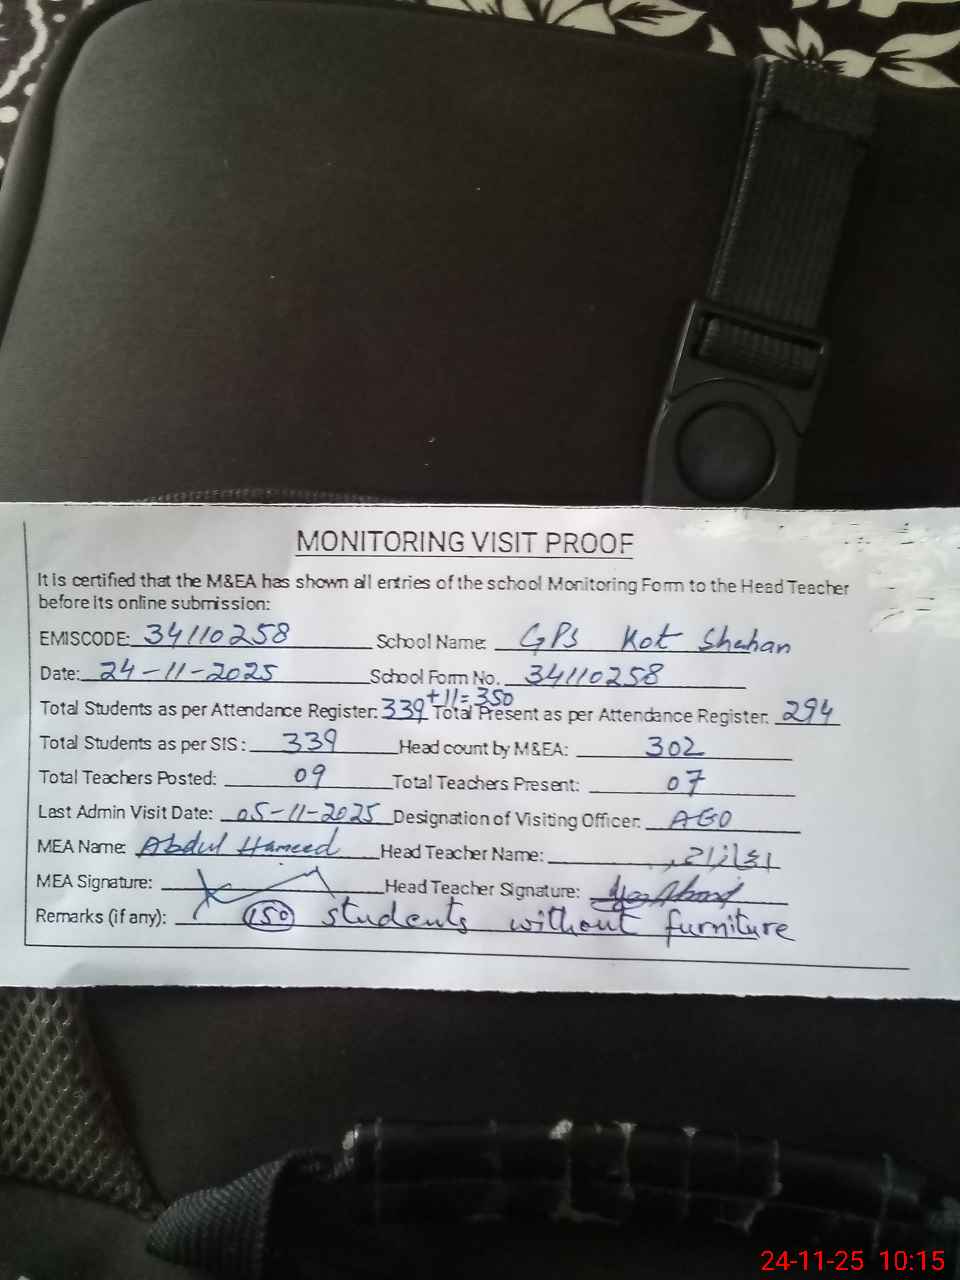 MONITORING VISIT PROOF
It is certified that the M&EA has shown all entries of the school Monitoring Form to the Head Teacher
before its online submission:
EMISCODE: 34110258 School Name: GPS Kot Shahan
Date: 24-11-2025 School Form No. 34110258
Total Students as per Attendance Register: 339 +11=350 Total Present as per Attendance Register: 294
Total Students as per SIS: 339 Head count by M&EA: 302
Total Teachers Posted: 09 Total Teachers Present: 07
Last Admin Visit Date: 05-11-2025 Designation of Visiting Officer: AEO
MEA Name: Abdul Hameed Head Teacher Name:
MEA Signature: Head Teacher Signature:
Remarks (if any): 150 students without furniture
24-11-25 10:15